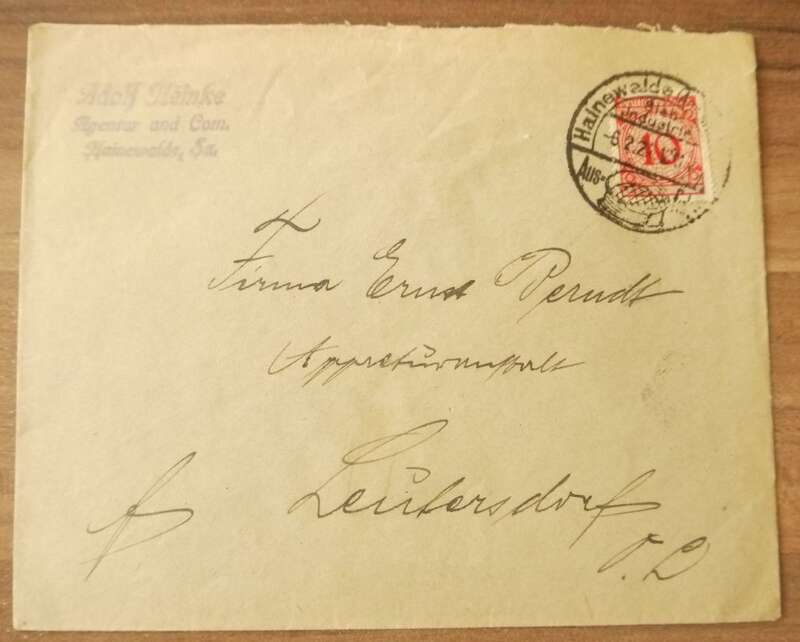 Adolf Heinke
Agentur und Com.
Hainewalde, Sa.
Hainewalde
Industrie
-6.2.2
Aus-
10
Firma Ernst Berndt
Appreturanstalt
Leutersdorf
O. L.